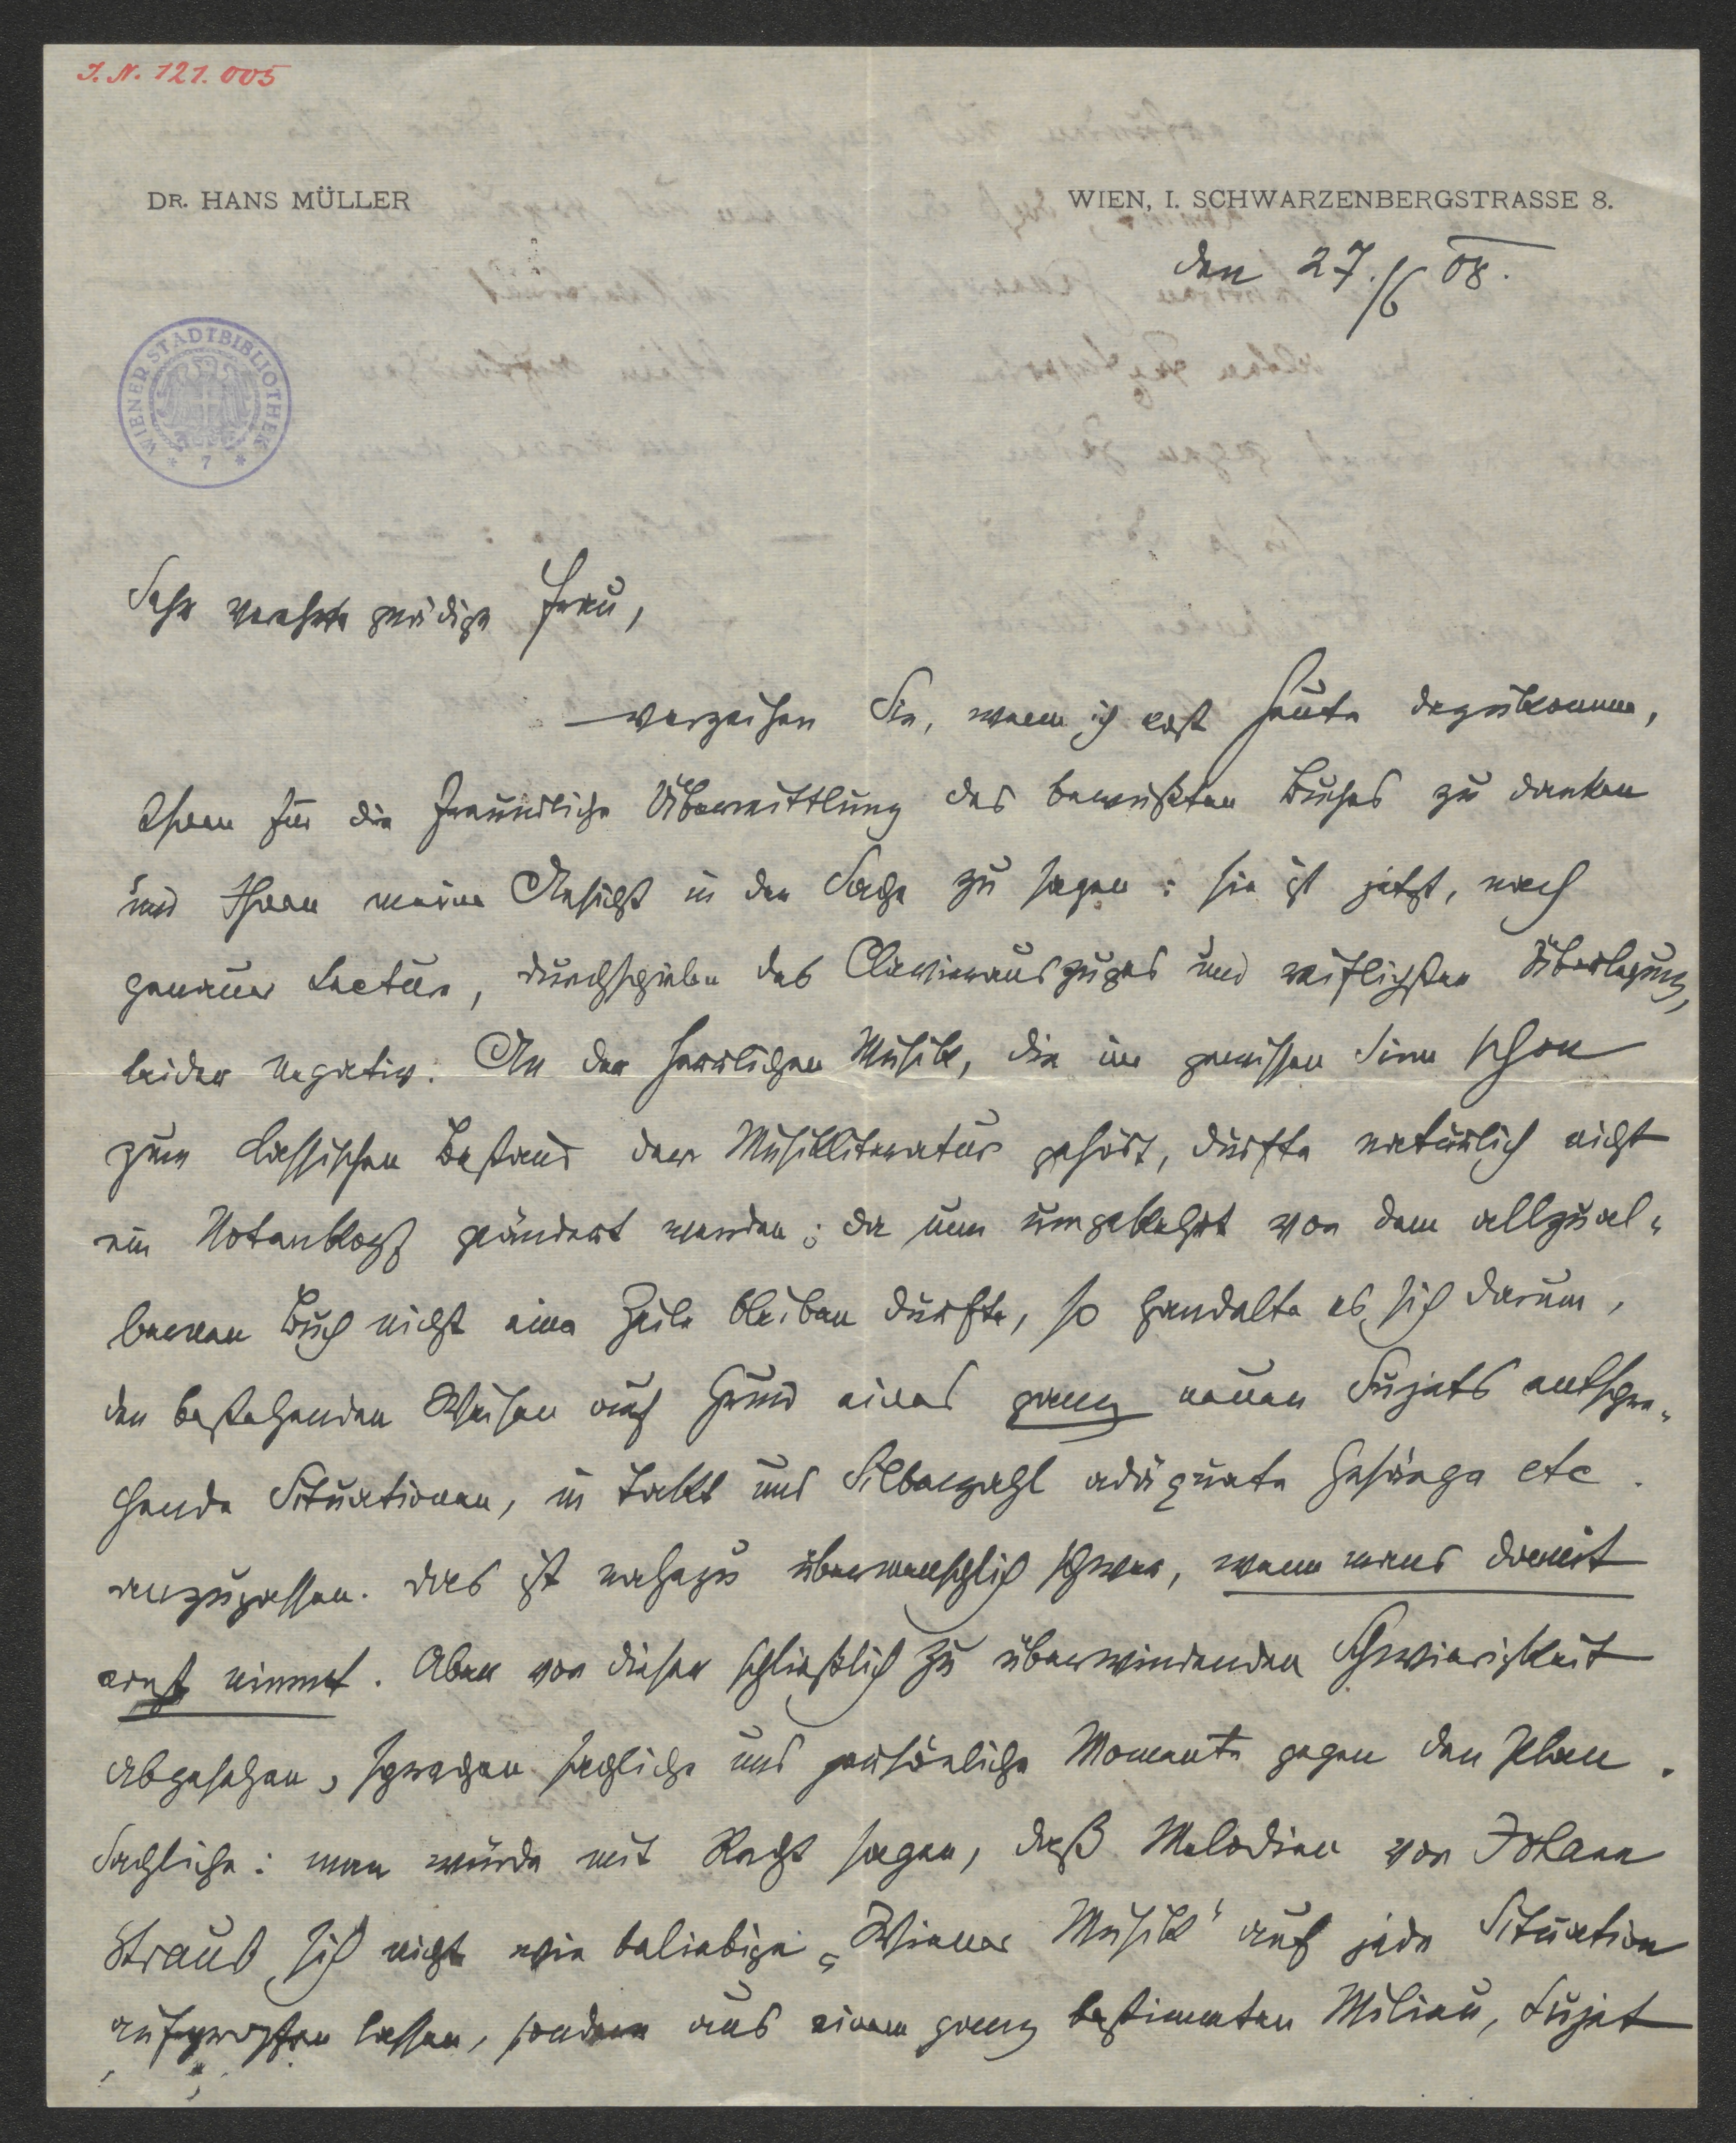 I. N. 121.005
DR. HANS MÜLLER
WIEN, I. SCHWARZENBERGSTRASSE 8.
den 27./6 08.
WIENER STADTBIBLIOTHEK
* 7 *
Sehr verehrte gnädige Frau,
verzeihen Sie, wenn ich erst heute dazukomme,
Ihnen für die freundliche Übermittlung des bewußten Buches zu danken
und Ihnen meine Ansicht in der Sache zu sagen: sie ist jetzt, nach
genauer Lectüre, Durchspielen des Clavierauszuges und reiflichster Überlegung,
leider negativ. An der herrlichen Musik, die im gewissen Sinn schon
zum classischen Bestand der Musikliteratur gehört, dürfte natürlich nicht
ein Notenkopf geändert werden; da nun umgekehrt von dem allzual-
bernen Buch nicht eine Zeile bleiben dürfte, so handelte es sich darum,
den bestehenden Weisen auf Grund eines ganz neuen Sujets entspre-
chende Situationen, in Takt und Silbenzahl adäquate Gesänge etc.
anzupassen. Das ist nahezu übermenschlich schwer, wenn mans damit
ernst nimmt. Aber von dieser schließlich zu überwindenden Schwierigkeit
abgesehen, sprechen sachliche und persönliche Momente gegen den Plan.
Sachliche: man würde mit Recht sagen, daß Melodien von Johann
Strauß sich nicht wie beliebige „Wiener Musik" auf jede Situation
aufpropfen lassen, sondern aus einem ganz bestimmten Milieu, Sujet